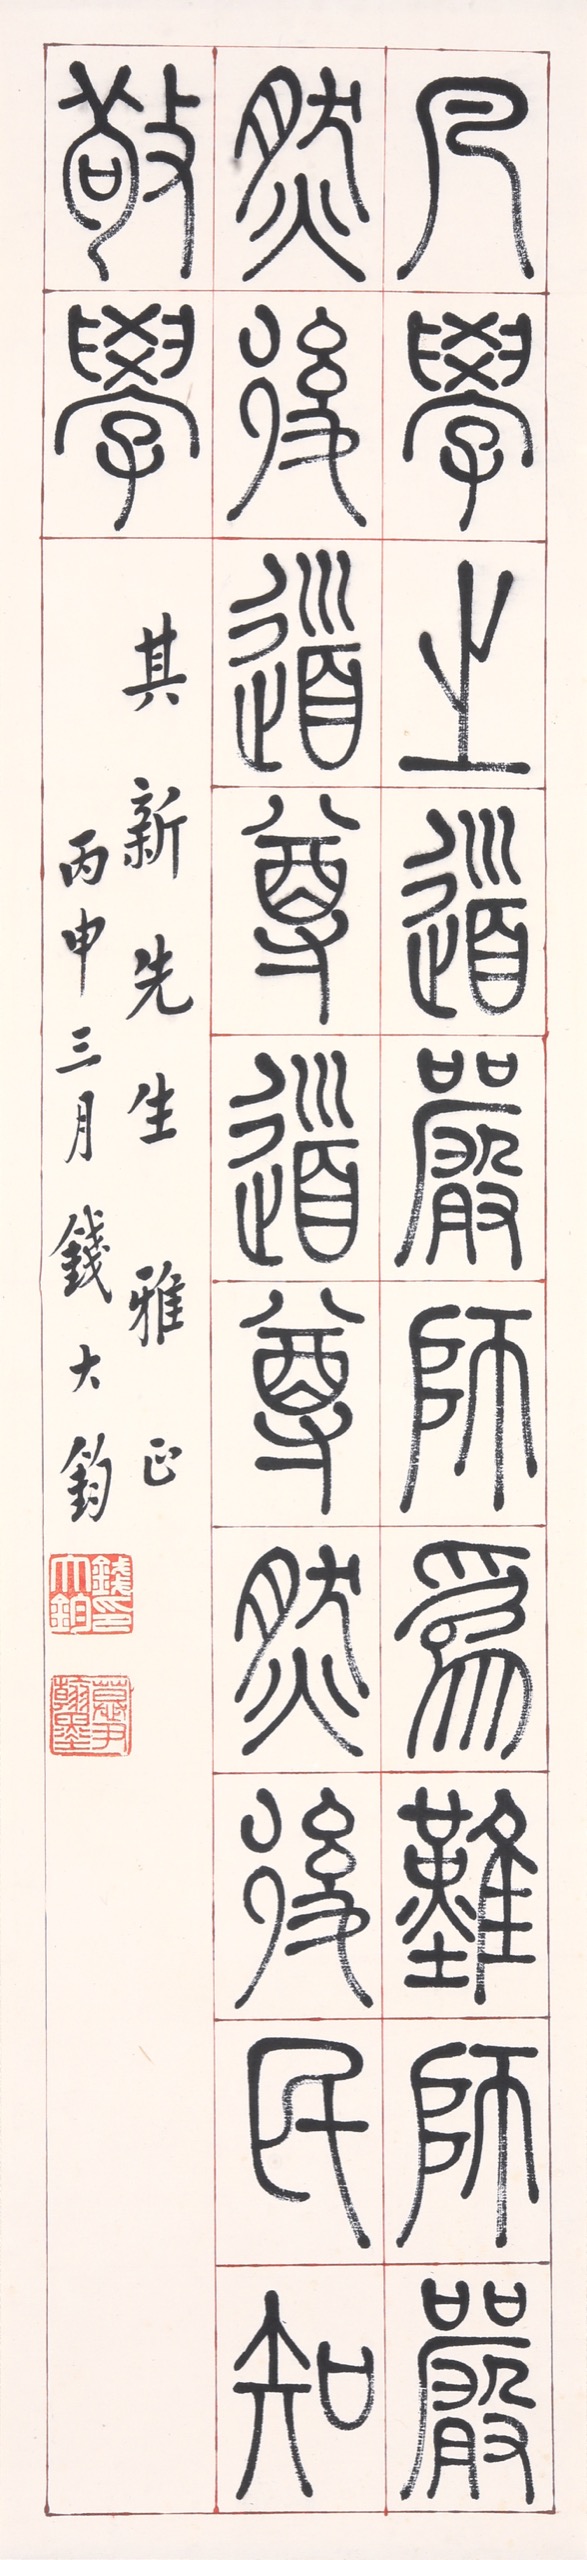 凡學之道嚴師爲難師嚴
然後道尊道尊然後民知
敬學
其新先生 雅正
丙申三月 錢大鈞
錢大鈞印
慕尹翰墨